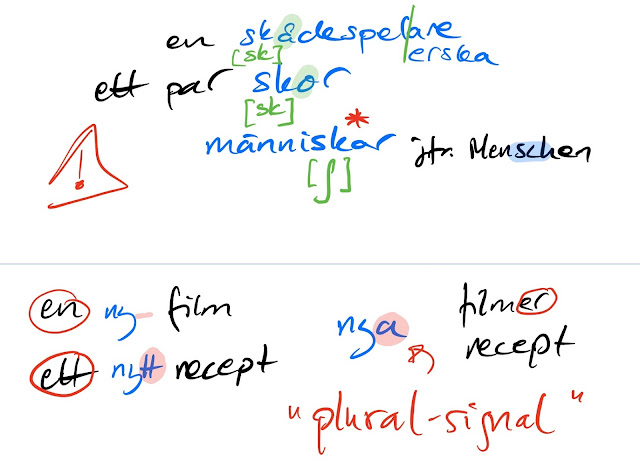 en skådespelare
[sk] erska
ett par skor
[sk]
människor * jfr. Menschen
[ʃ]
!
en ny film
ett nytt recept
nya filmer
recept
"plural-signal"